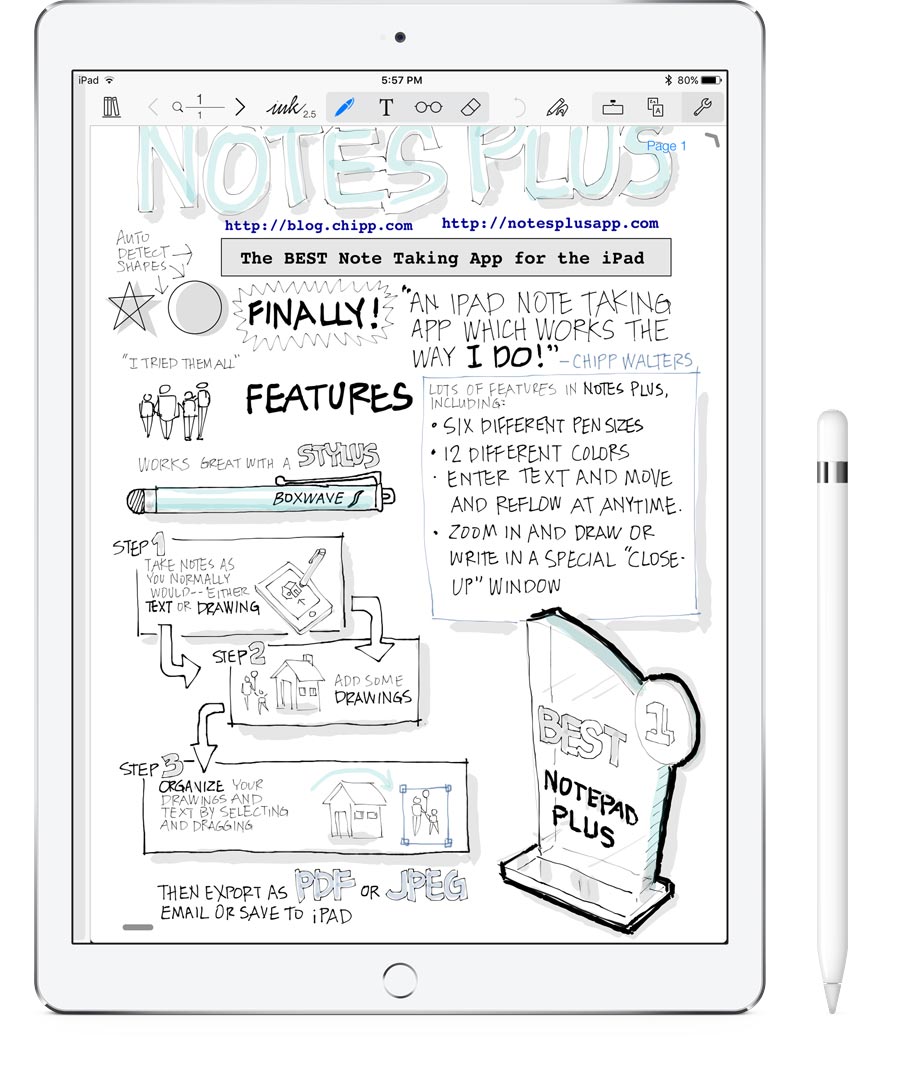 iPad
5:57 PM
80%
1
1
ink 2.5
T
NOTES PLUS
Page 1
http://blog.chipp.com
http://notesplusapp.com
The BEST Note Taking App for the iPad
AUTO
DETECT
SHAPES
FINALLY!
"AN IPAD NOTE TAKING
APP WHICH WORKS THE
WAY I DO!" - CHIPP WALTERS
"I TRIED THEM ALL"
FEATURES
LOTS OF FEATURES IN NOTES PLUS,
INCLUDING:
• SIX DIFFERENT PEN SIZES
• 12 DIFFERENT COLORS
• ENTER TEXT AND MOVE
AND REFLOW AT ANYTIME.
• ZOOM IN AND DRAW OR
WRITE IN A SPECIAL "CLOSE-
UP" WINDOW
WORKS GREAT WITH A STYLUS
BOXWAVE
STEP 1
TAKE NOTES AS
YOU NORMALLY
WOULD-- EITHER
TEXT OR DRAWING
STEP 2
ADD SOME
DRAWINGS
STEP 3
ORGANIZE YOUR
DRAWINGS AND
TEXT BY SELECTING
AND DRAGGING
THEN EXPORT AS PDF OR JPEG
EMAIL OR SAVE TO iPAD
BEST
1
NOTEPAD
PLUS